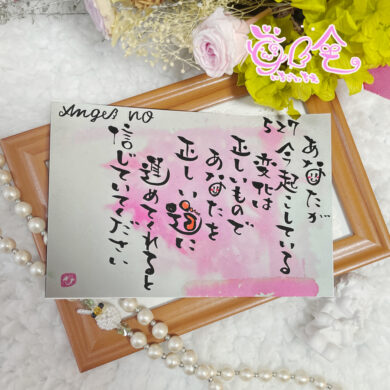 Angel NO
527
あなたが
今起こしている
変化は
正しいもので
あなたを
正しい道に
進めてくれると
信じていてください